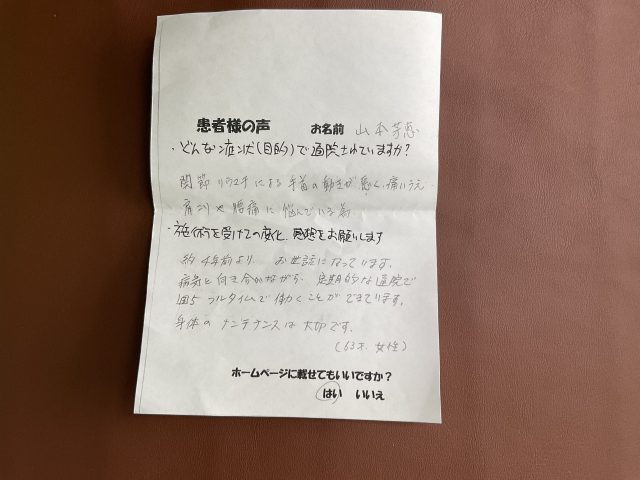 患者様の声 お名前 山本芳恵
・どんな症状(目的)で通院されていますか?
関節リウマチによる手首の動きが悪く、痛いうえ
肩こりや腰痛に悩んでいる為
・施術を受けての変化、感想をお願いします
約4年前より お世話になっています。
病気と向き合いながら、定期的な通院で
週5フルタイムで働くことができています。
身体のメンテナンスは大切です。
(63才、女性)
ホームページに載せてもいいですか?
はい いいえ